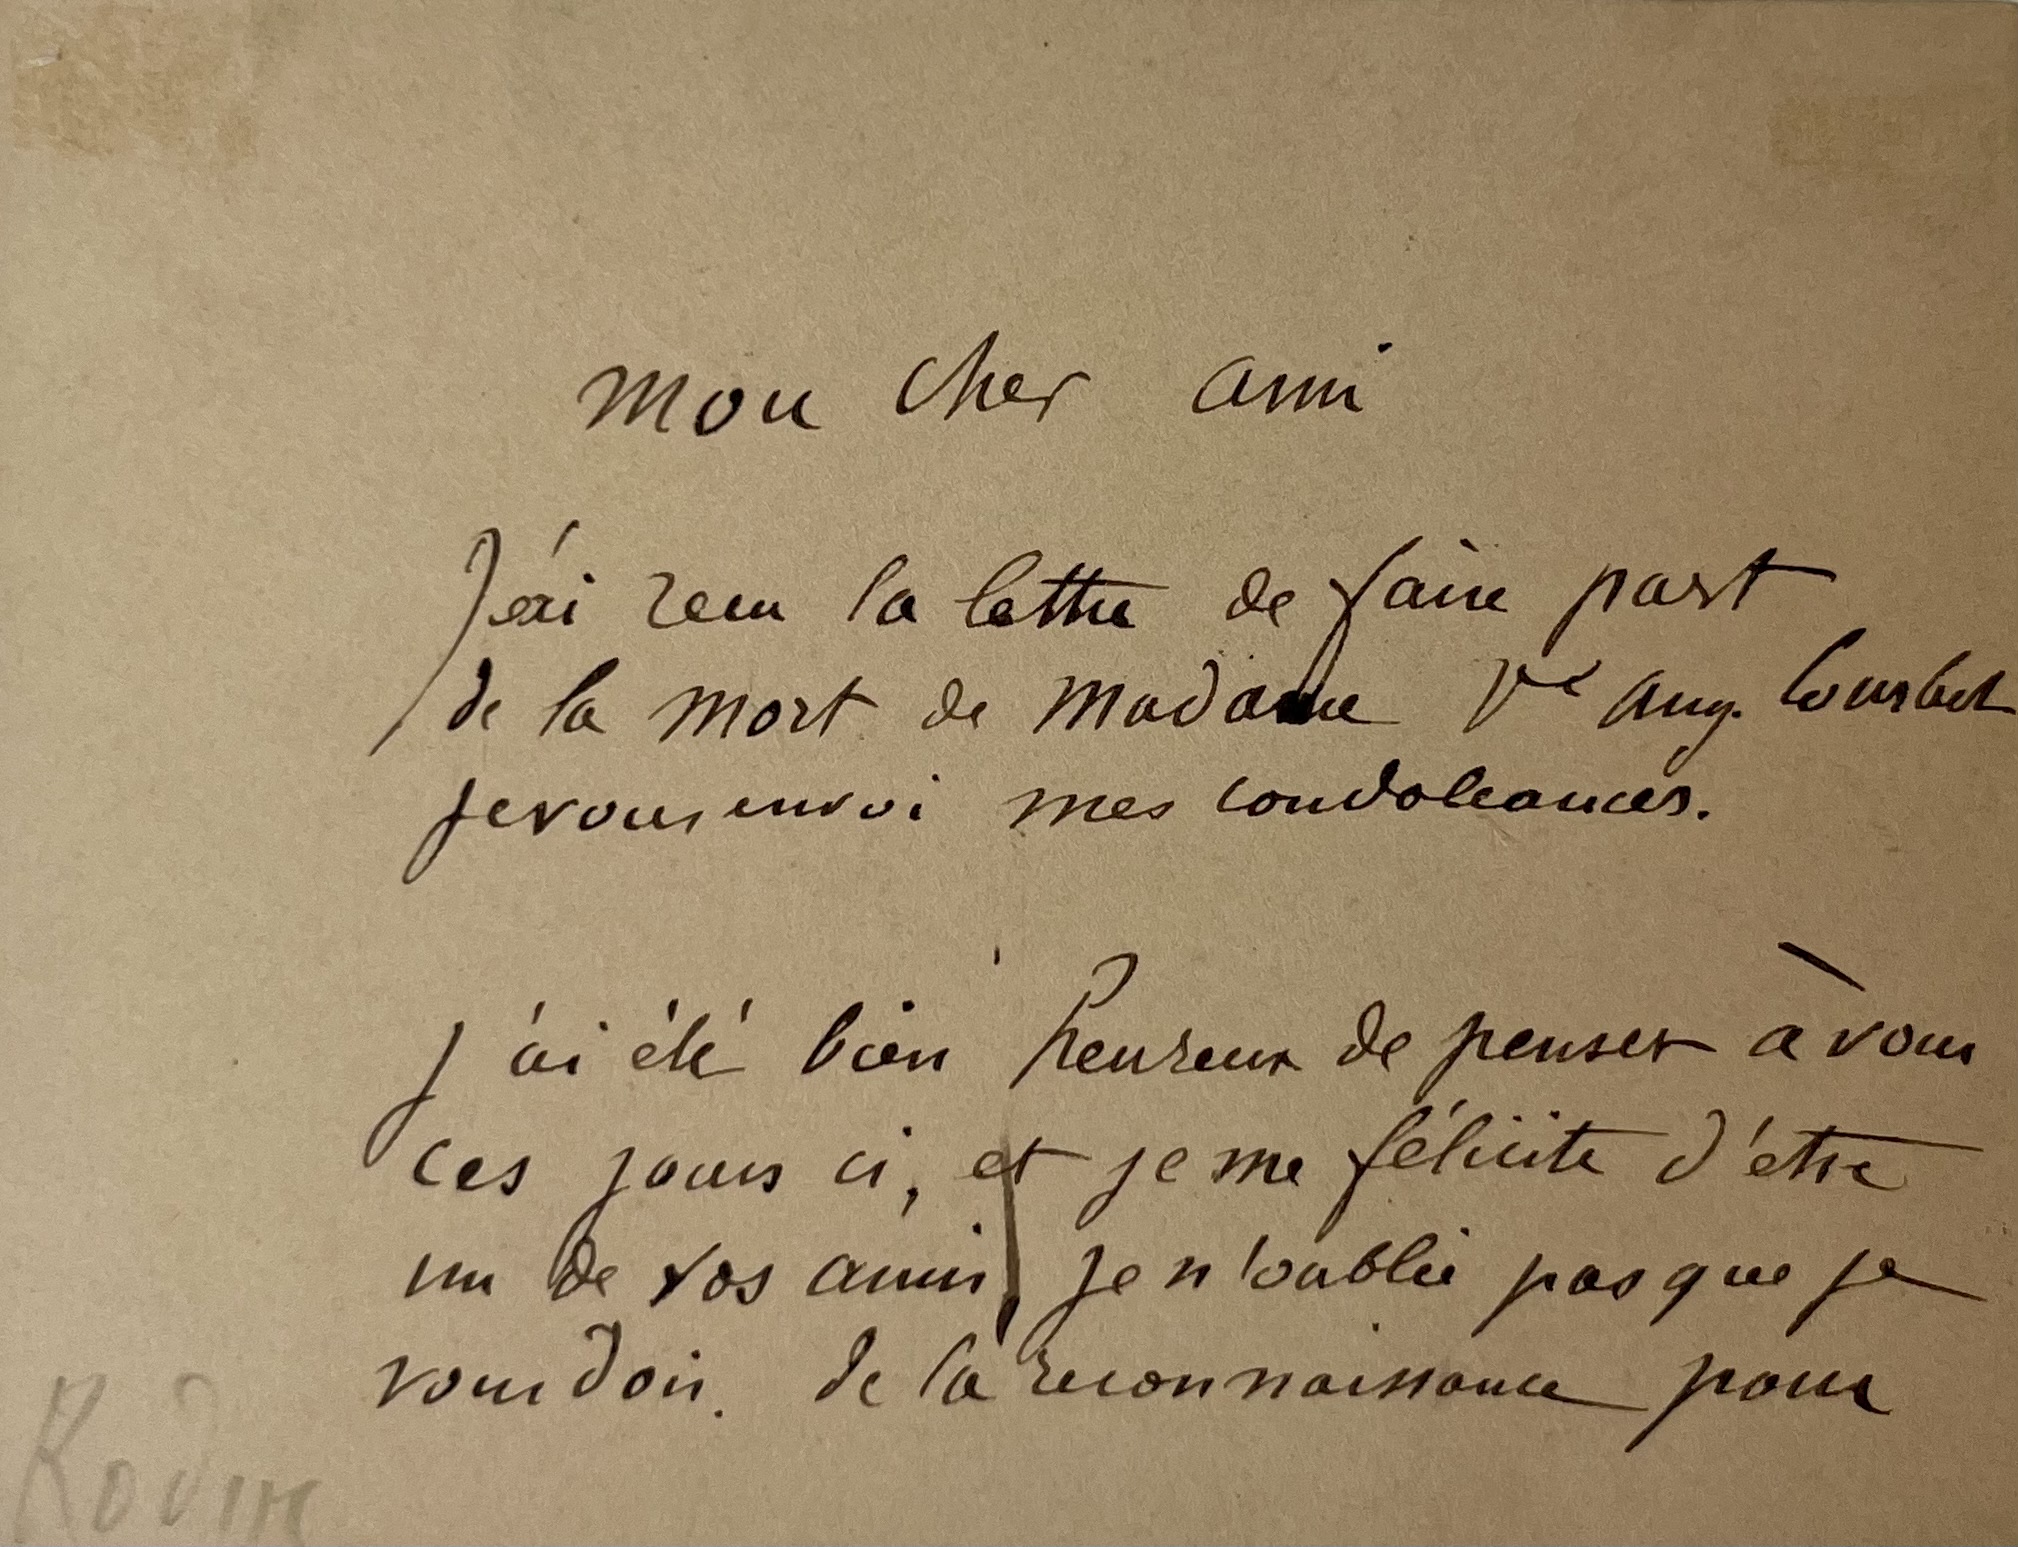 Mon cher ami
J'ai recu la lettre de faire part
de la mort de Madame Vve Aug. Courbet
je vous envoi mes condoleances.
j'ai été bien heureux de penser à vous
ces jours ci, et je me félicite d'etre
un de vos amis, je n'oublie pas que je
vous dois de la reconnaissance pour
Rodin